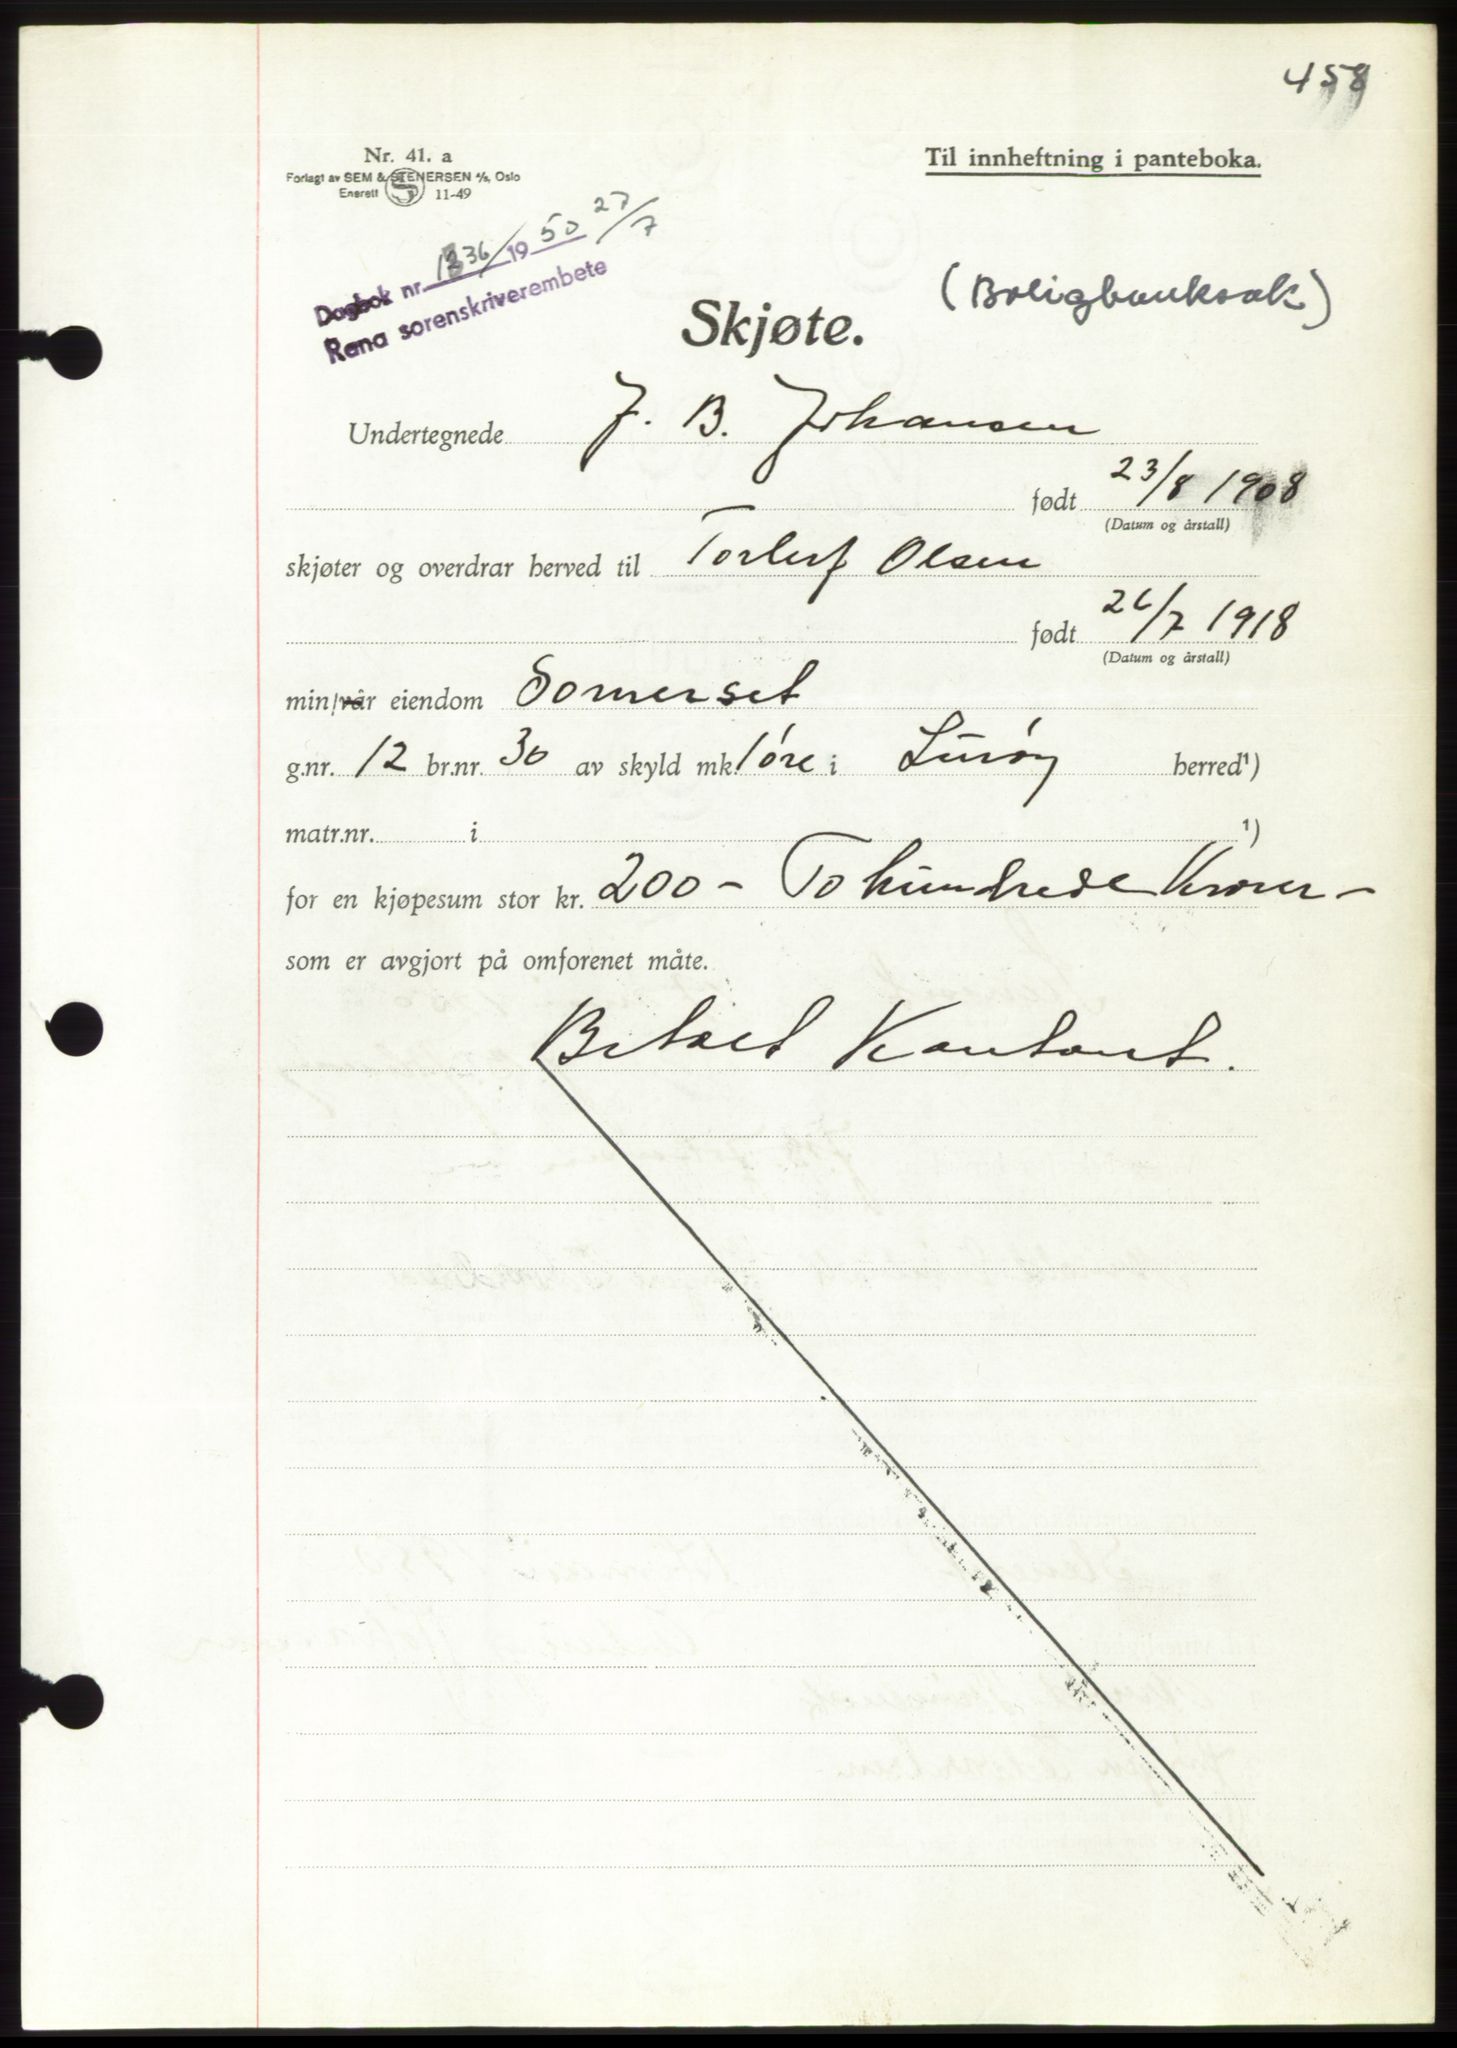 458
Nr. 41. a
Forlagt av SEM & STENERSEN A/S, Oslo
Enerett 11-49
Til innheftning i panteboka.
Dagbok nr. 1236/1950 27/7
Rana sorenskriverembete
(Boligbanksak)
Skjøte.
Undertegnede J. B. Johansen
født 23/8 1908
(Datum og årstall)
skjøter og overdrar herved til Torleif Olsen
født 26/7 1918
(Datum og årstall)
min/vår eiendom Somerset
g.nr. 12 br.nr. 30 av skyld mk. 1 øre i Lurøy herred¹)
matr.nr. i ¹)
for en kjøpesum stor kr. 200 – To hundrede Kroner –
som er avgjort på omforenet måte.
Betalt Kontant.